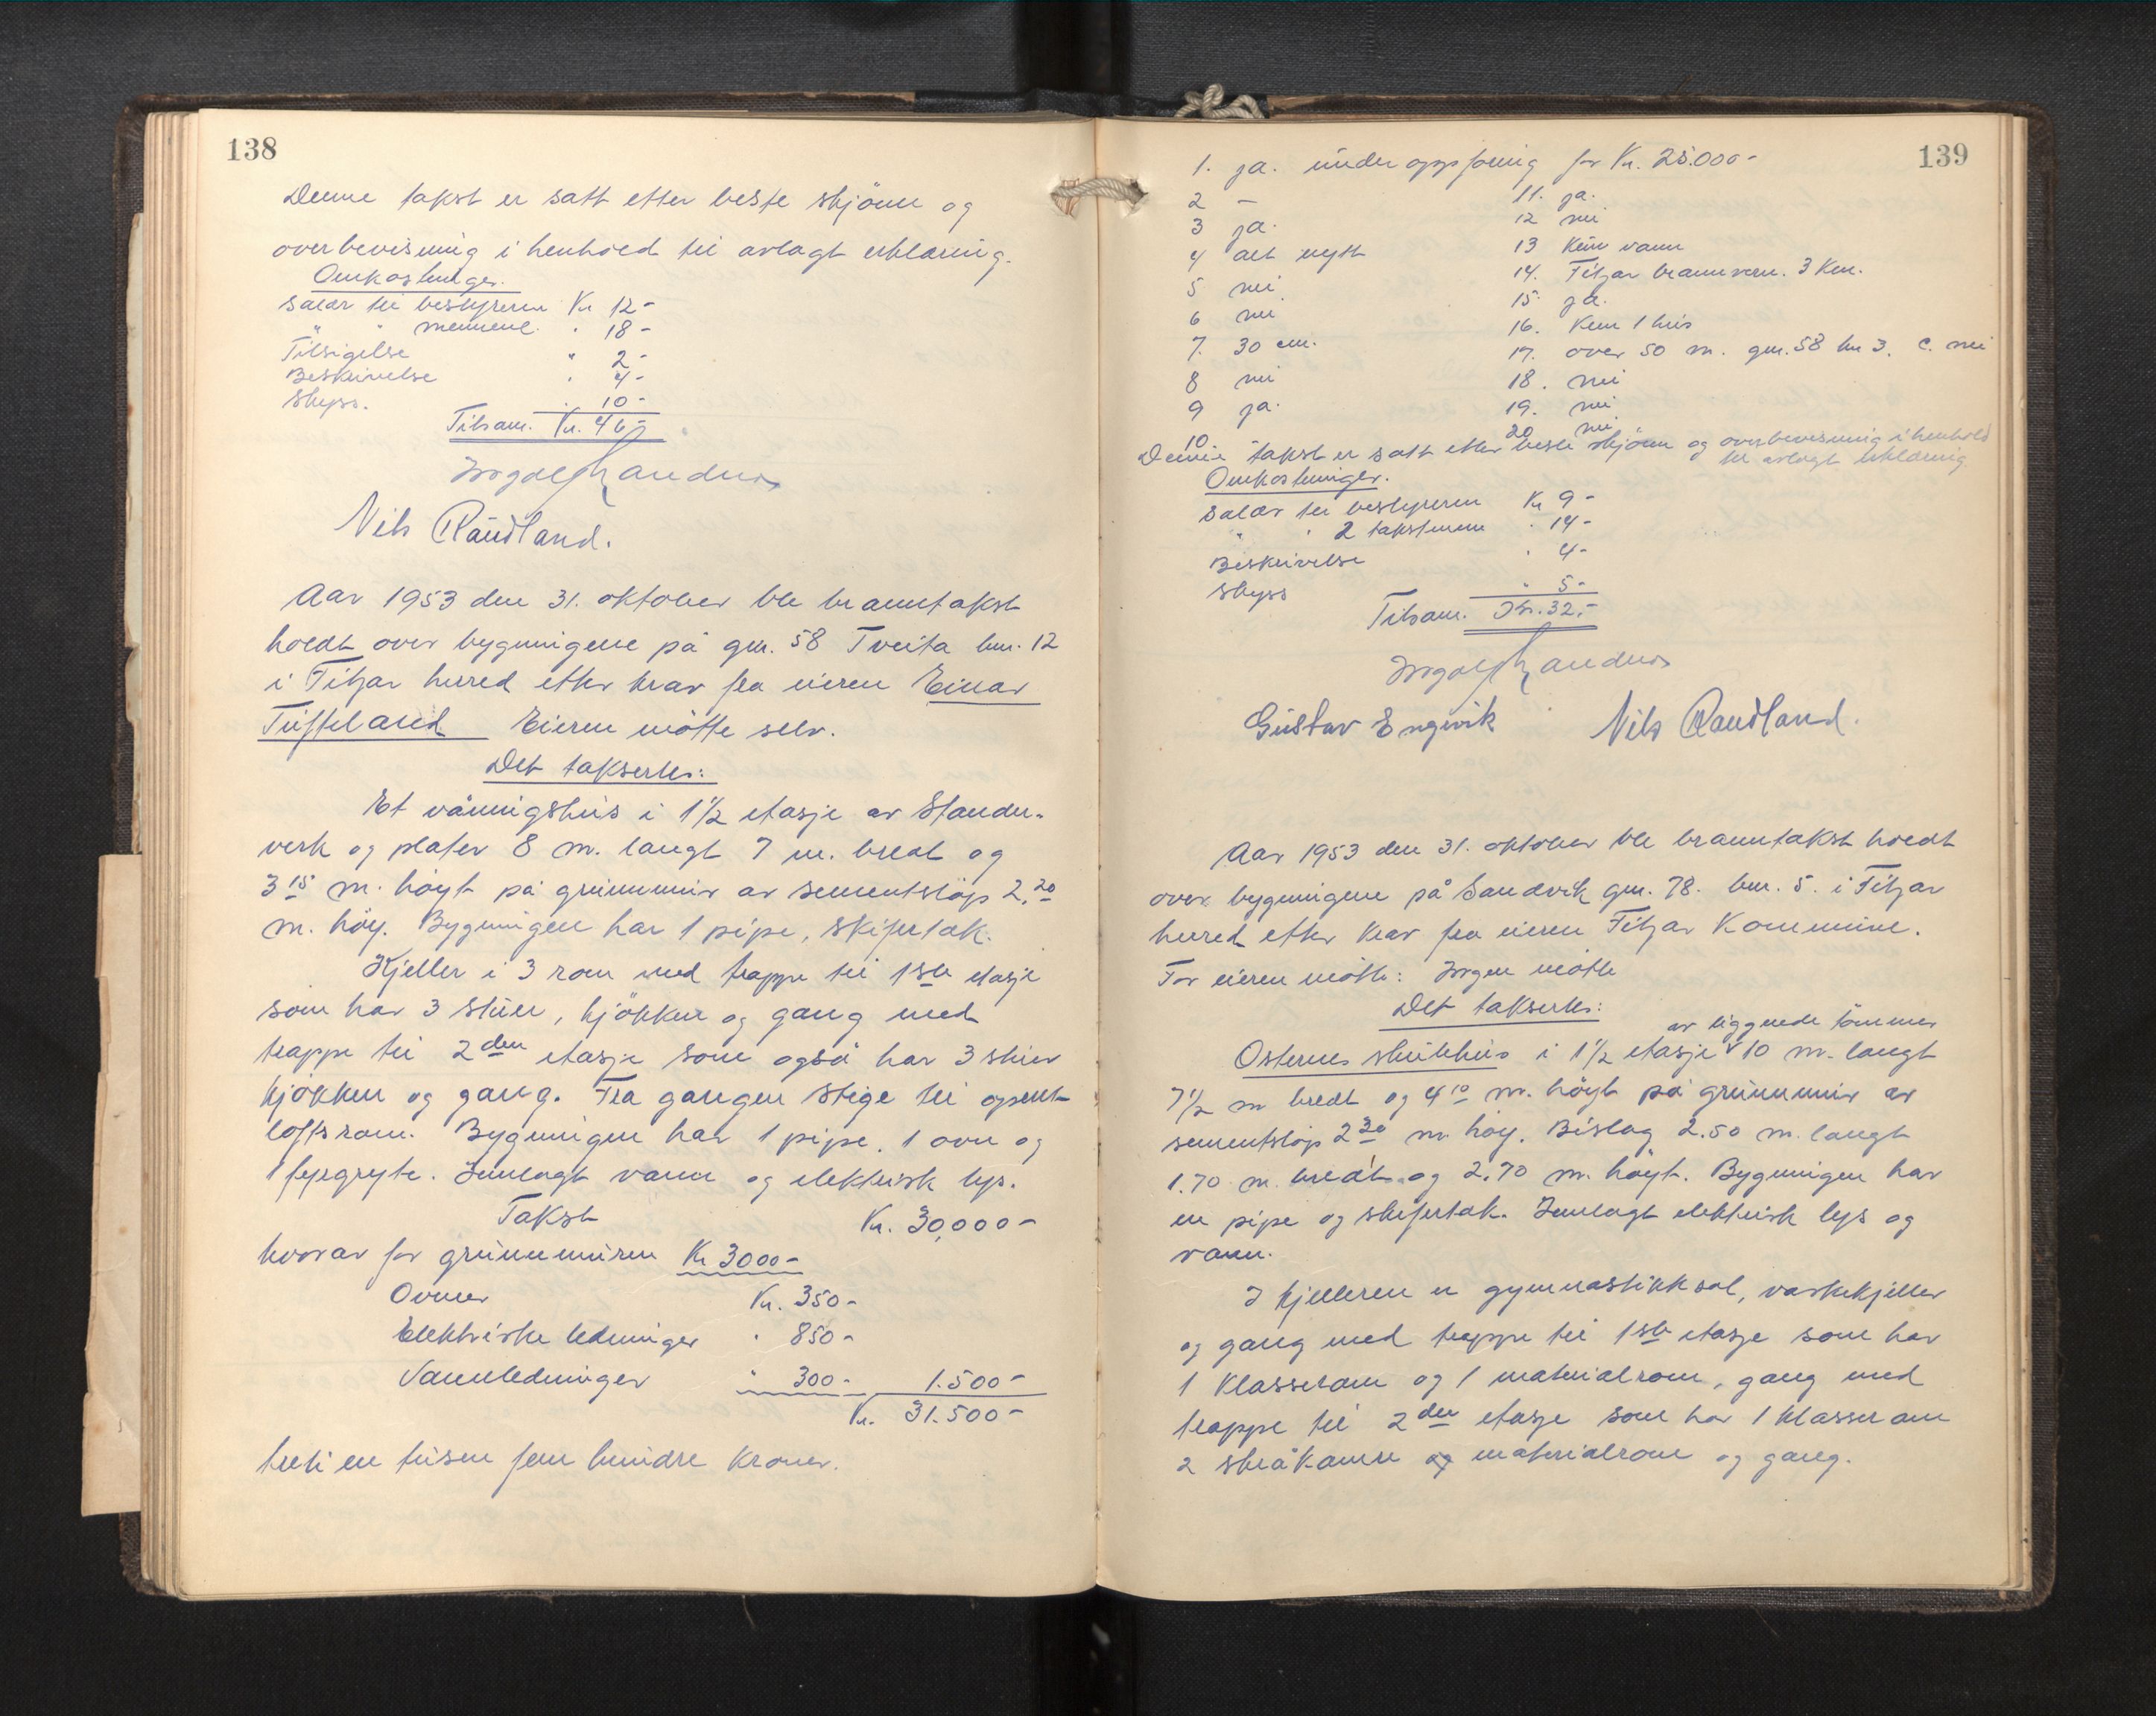 138
Denne takst er satt etter beste skjönn og
overbevisning i henhold til avlagt erklæring.
Omkostninger.
Salær til bestyreren Kr 12-
" " mennene. " 18-
Tilsigelse " 2-
Beskrivelse " 4-
Skyss. " 10-
Tilsam. Kr. 46-
Nils Raudland.
Aar 1953 den 31. oktober ble branntakst
holdt over bygningene på gnr. 58 Tveita bnr. 12
i Fitjar herred etter krav fra eieren Einar
Tufteland Eieren mötte selv.
Det takserles:
Et våningshus i 1 1/2 etasje av Stender-
verk og plater 8 m. langt 7 m. bredt og
3 15 m. höyt på grunnmur av sementstöp 2.20
m. höy. Bygningen har 1 pipe, skifertak.
Kjeller i 3 rom med trappe til 1ste etasje
som har 3 stuer, kjökken og gang med
trappe til 2den etasje som også har 3 stuer
kjökken og gang. Fra gangen stige til opent
loftsrom. Bygningen har 1 pipe. 1 ovn og
1 fyrgryte. Innlagt vann og elektrisk lys.
Takst Kr. 30,000-
hvorav for grunnmuren Kr 3000-
Ovner Kr. 350-
Elektriske ledninger " 850-
Vannledninger " 300- 1.500-
Kr. 31.500-
tretti en tusen fem hundre kroner.
139
1. ja. under oppföring for Kr. 25.000-
2 - 11. ja.
3 ja. 12 nei
4 alt nytt 13 Kun vann
5 nei 14. Fitjar brannvern. 3 Km.
6 nei 15. ja.
7. 30 cm. 16. Kun 1 hus
8 nei 17. over 50 m. gnr. 58 bn 3. c. nei
9 ja. 18. nei
10 19. nei
20 nei
Denne takst er satt etter beste skjönn og overbevisning i henhold
til avlagt erklæring
Omkostninger.
Salær til bestyreren Kr 9-
" " 2 takstmenn " 14-
Beskrivelse " 4-
Skyss " 5-
Tilsam. Kr. 32.-
Gustav Engevik Nils Raudland.
Aar 1953 den 31. oktober ble branntakst holdt
over bygningene på Sandvik gnr. 78. bnr. 5. i Fitjar
herred etter krav fra eieren Fitjar Kommune.
For eieren mötte: Ingen mötte
Det takserles:
av liggende tömmer
Osternes skulehus i 1 1/2 etasje v 10 m. langt
7 1/2 m bredt og 4 10 m. höyt på grunnmur av
sementstöp 2 30 m. höy. Bislag 2.50 m. langt
1.70 m. bredt og 2.70 m. höyt. Bygningen har
en pipe og skifertak. Innlagt elektrisk lys og
vann.
I kjelleren er gymnastikksal, vaskekjeller
og gang med trappe til 1ste etasje som har
1 Klasserom og 1 materialrom, gang med
trappe til 2den etasje som har 1 klasserom
2 småkamre og materialrom og gang.